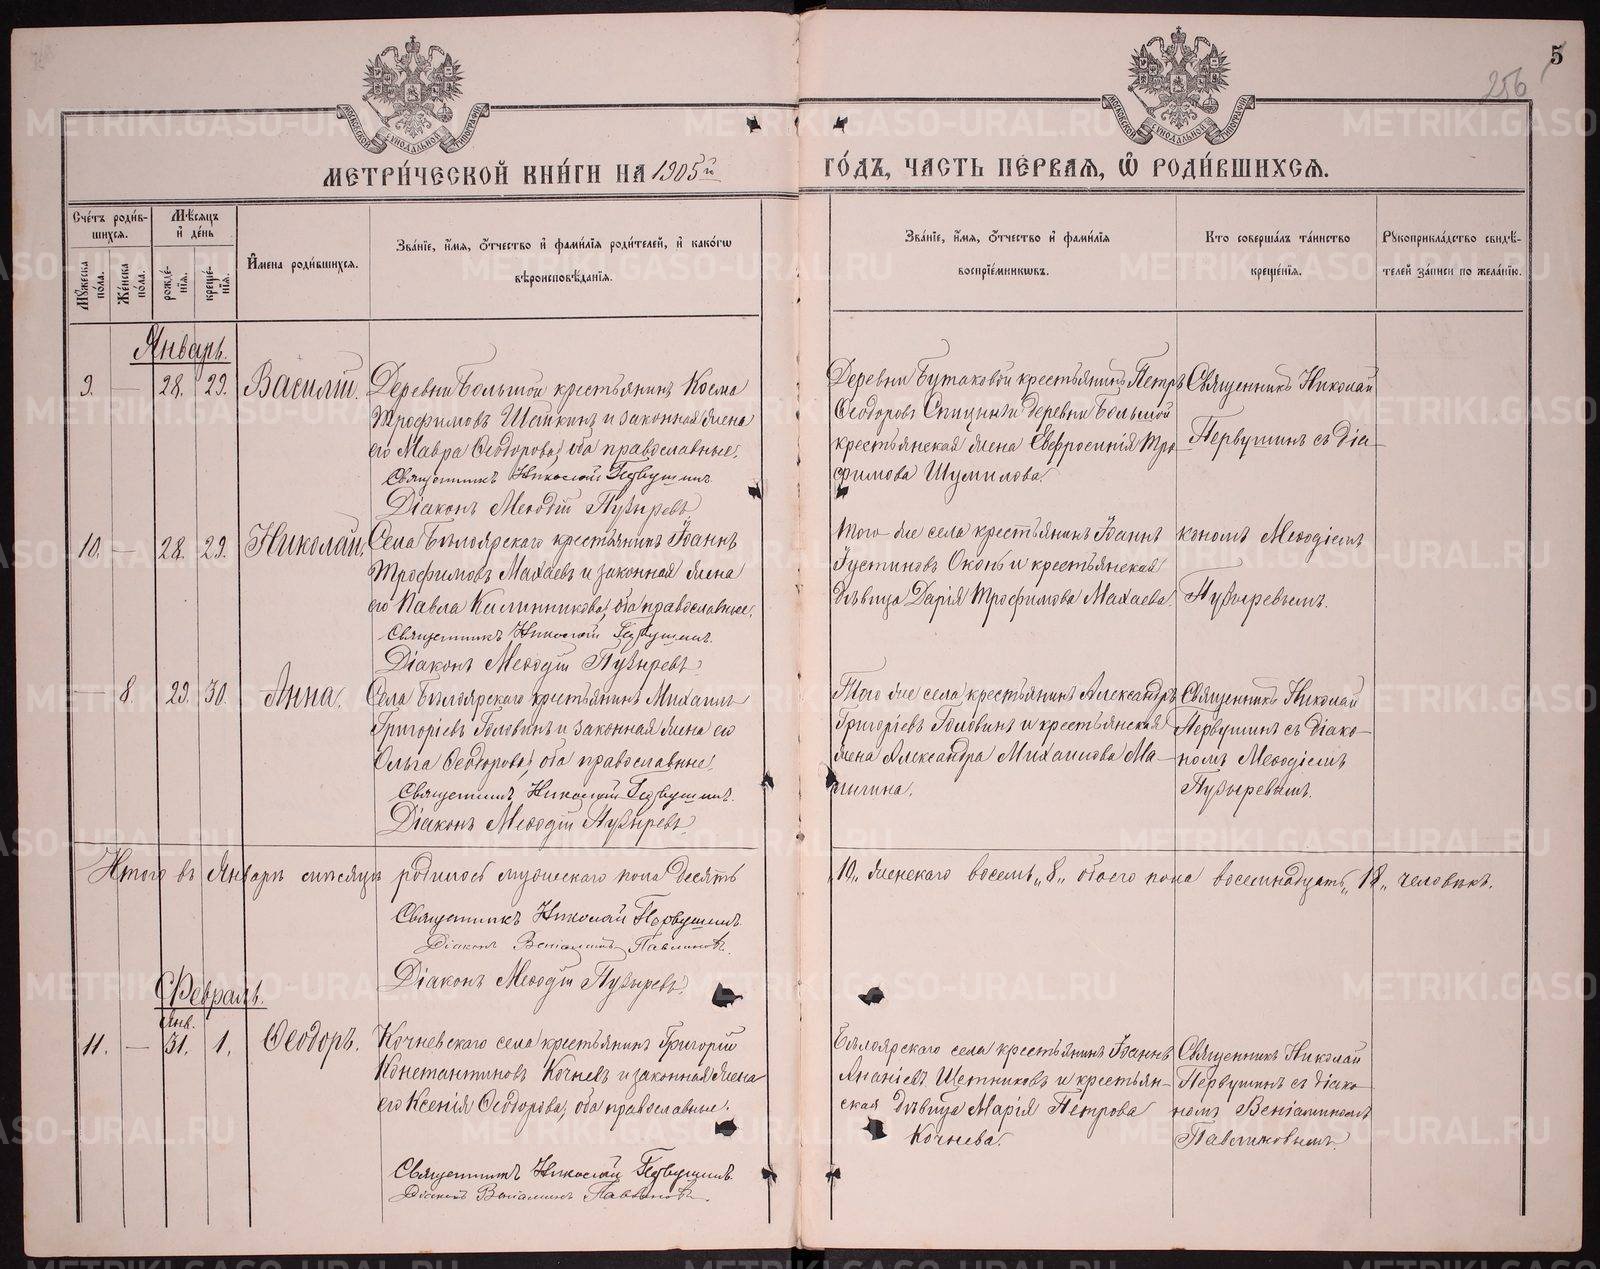 5
256
МЕТРИ́ЧЕСКОЙ КНИ́ГИ НА 1905й ГО́ДЪ, ЧАСТЬ ПЕ́РВАЯ, Ѡ РОДИ́ВШИХСЯ.
Сче́тъ роди́в-
шихся.
Му́жеска по́ла.
Же́нска по́ла.
Мѣ́сяцъ
и де́нь
рожде́-
нія.
креще́-
нія.
И́мена роди́вшихся.
Зва́ніе, и́мя, о́тчество и фами́лія роди́телей, и како́гѡ
вѣроисповѣ́данія.
Зва́ніе, и́мя, о́тчество и фами́лія
воспріе́мниковъ.
Кто соверша́лъ та́инство
креще́нія.
Рукоприкла́дство свидѣ́-
телей за́писи по жела́нію.
Январь.
9. — 28. 29. Василій.
Деревни Большой крестьянинъ Косма
Трофимовъ Шайкинъ и законная жена
его Мавра Ѳеодорова, оба православные.
Священникъ Николай Первушинъ.
Діаконъ Меѳодій Пузыревъ.
Деревни Бутаковой крестьянинъ Петръ
Ѳеодоровъ Спицынъ и деревни Большой
крестьянская жена Евфросинія Тро-
фимова Шумилова.
Священникъ Николай
Первушинъ съ діа-
10. — 28. 29. Николай.
Села Бѣлоярскаго крестьянинъ Іоаннъ
Трофимовъ Махаевъ и законная жена
его Павла Калинникова, оба православные.
Священникъ Николай Первушинъ.
Діаконъ Меѳодій Пузыревъ.
Того же села крестьянинъ Іоаннъ
Іустиновъ и крестьянская
дѣвица Дарія Трофимова Махаева.
кономъ Меѳодіемъ
Пузыревымъ.
— 8. 29. 30. Анна.
Села Бѣлоярскаго крестьянинъ Михаилъ
Григоріевъ Головинъ и законная жена его
Ольга Ѳеодорова, оба православные.
Священникъ Николай Первушинъ.
Діаконъ Меѳодій Пузыревъ.
Того же села крестьянинъ Александръ
Григоріевъ Головинъ и крестьянская
жена Александра Михаилова Ма-
лыгина.
Священникъ Николай
Первушинъ съ діако-
номъ Меѳодіемъ
Пузыревымъ.
Итого въ Январѣ мѣсяцѣ родилось мужескаго пола десять „10„ женскаго восемь „8„ обоего пола восемнадцать „18„ человѣкъ.
Священникъ Николай Первушинъ.
Діаконъ Веніаминъ Павлиновъ.
Діаконъ Меѳодій Пузыревъ.
Февраль.
Янв.
11. — 31. 1. Ѳеодоръ.
Кочневскаго села крестьянинъ Григорій
Константиновъ Кочневъ и законная жена
его Ксенія Ѳеодорова, оба православные.
Священникъ Николай Первушинъ.
Діаконъ Веніаминъ Павлиновъ.
Бѣлоярскаго села крестьянинъ Іоаннъ
Ананіевъ Щетниковъ и крестьян-
ская дѣвица Марія Петрова
Кочнева.
Священникъ Николай
Первушинъ съ діако-
номъ Веніаминомъ
Павлиновымъ.
METRIKI.GASO-URAL.RU